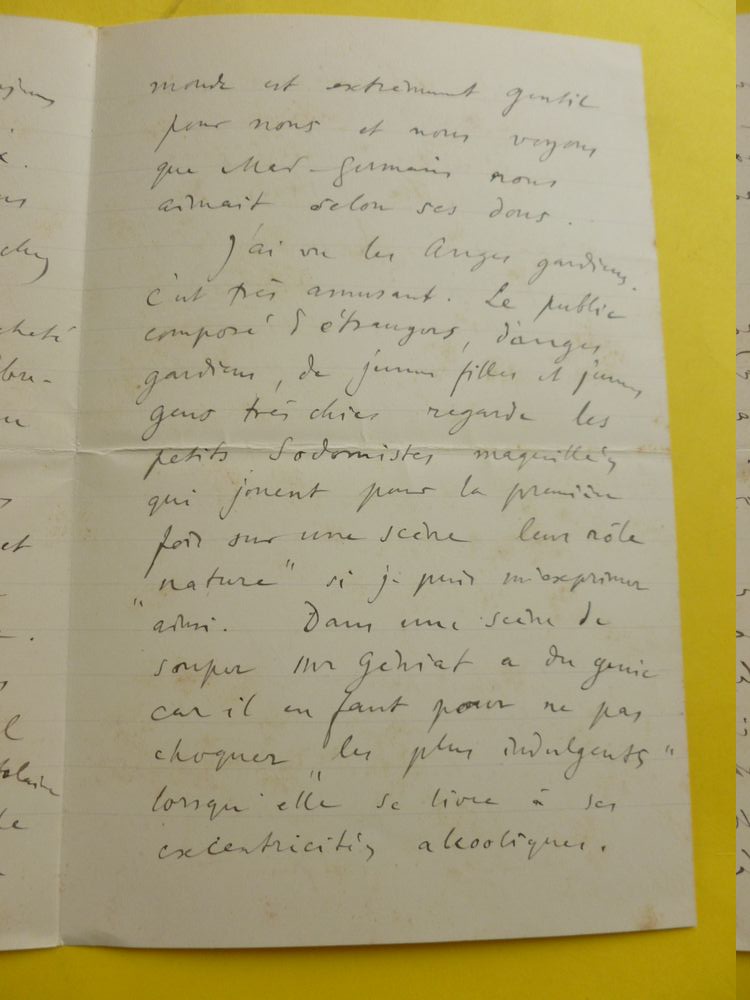 monde est extrêmement gentil
pour nous et nous voyons
que Mad. Germain nous
aimait selon ses dons.
J'ai vu les Anges gardiens.
C'est très amusant. Le public
composé d'étrangers, d'anges
gardiens, de jeunes filles et jeunes
gens très chics regarde les
petits Sodomistes maquillés
qui jouent pour la première
fois sur une scène leur rôle
"nature" si je puis m'exprimer
ainsi. Dans une scène de
souper Géniat a du génie
car il en faut pour ne pas
choquer "les plus indulgents"
lorsqu'elle se livre à ses
excentricités alcooliques.